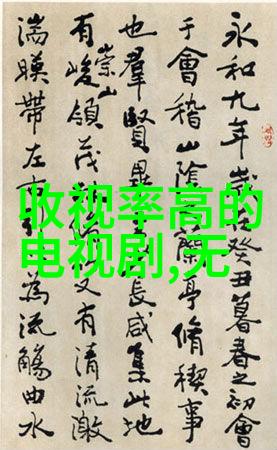 收视率高的
电视剧,无
永和九年歲癸丑暮春之初會
于會稽山陰蘭亭脩禊事
也羣賢畢長咸集此地
有崇山峻領茂又有清流激
湍暎帶左右為流觴曲水